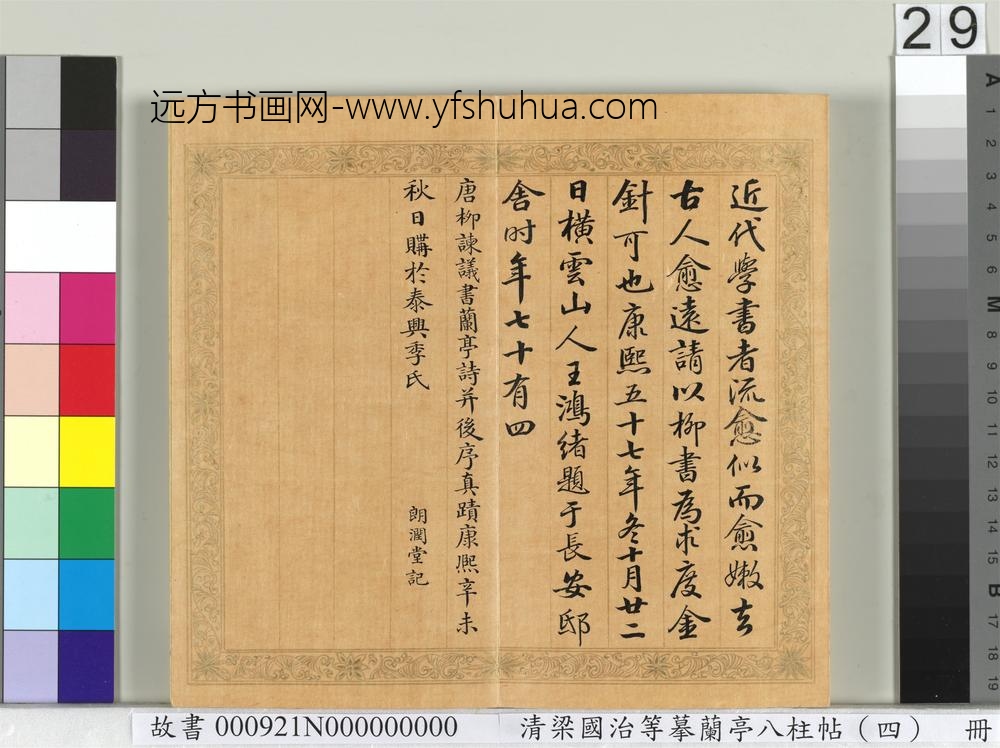 29
远方书画网-www.yfshuhua.com
近代學書者流愈似而愈嫩去
古人愈遠請以柳書為求度金
針可也康熙五十七年冬十月廿二
日橫雲山人王鴻緒題于長安邸
舍时年七十有四
唐柳諫議書蘭亭詩并後序真蹟康熙辛未
秋日購於泰興季氏
朗潤堂記
A
1
2
3
4
5
6
M
8
9
10
11
12
13
14
15
B
17
18
19
故書 000921N000000000 清梁國治等摹蘭亭八柱帖（四） 冊